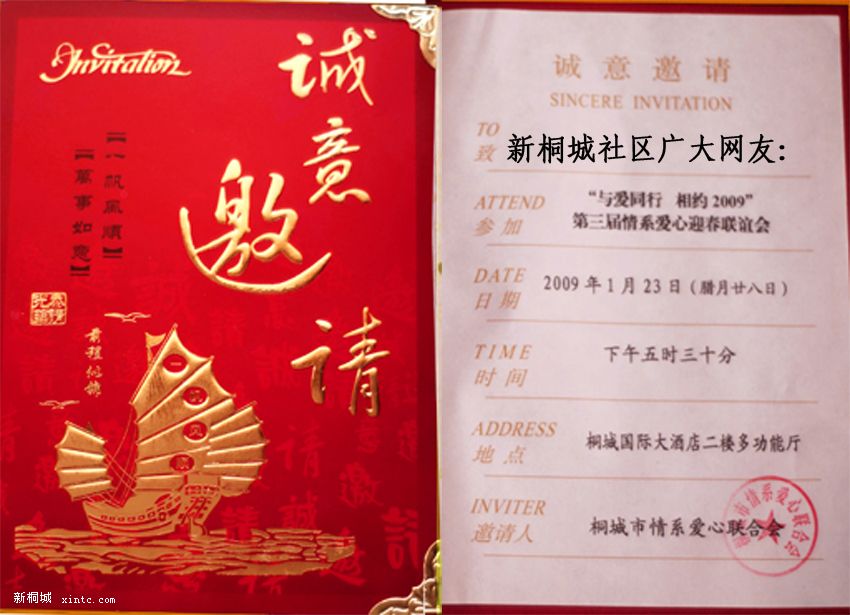 Invitation
诚意邀请
【一帆風順】
【萬事如意】
恭請光臨
前程似锦
一帆风顺
新桐城 xintc.com
诚意邀请
SINCERE INVITATION
TO
致
新桐城社区广大网友:
ATTEND
参加
“与爱同行 相约2009”
第三届情系爱心迎春联谊会
DATE
日期
2009年1月23日(腊月廿八日)
TIME
时间
下午五时三十分
ADDRESS
地点
桐城国际大酒店二楼多功能厅
INVITER
邀请人
桐城市情系爱心联合会